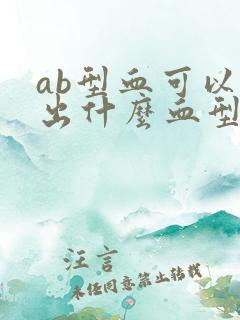 ab型血可以
出什麼血型
汪言
未经同意禁止转载